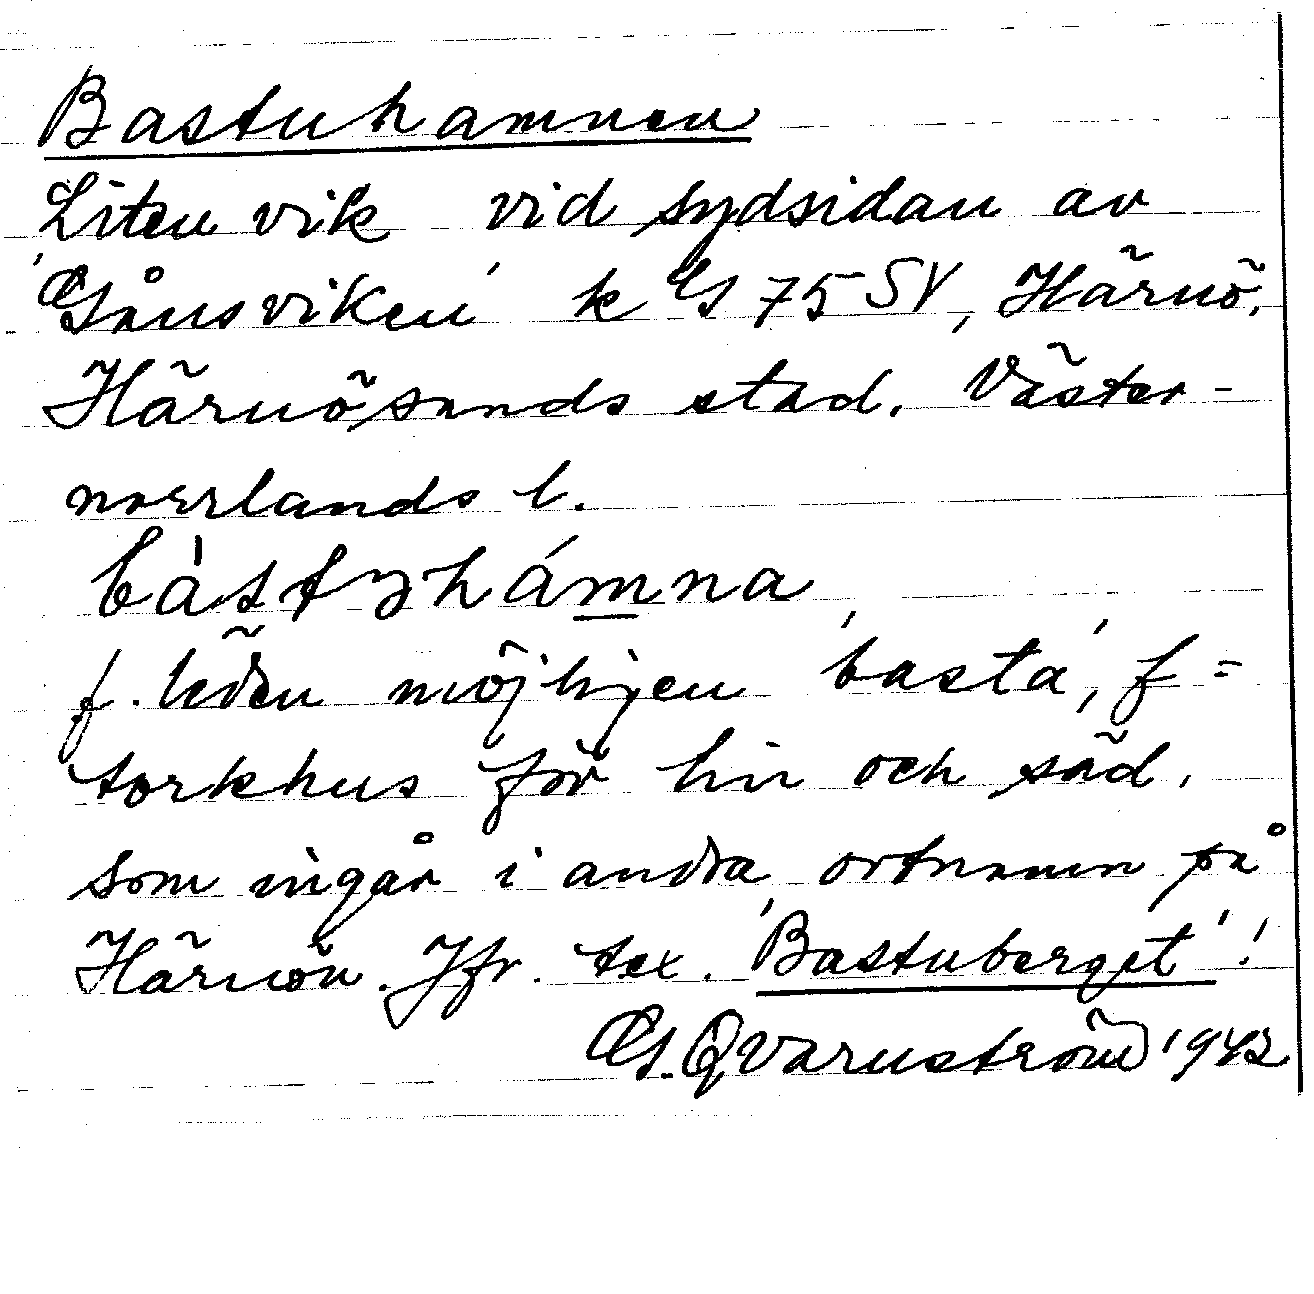 Bastuhamnen
Liten vik vid sydsidan av
'Gånsviken' k G 75 SV, Härnö,
Härnösands stad. Väster-
norrlands l.
bàstʒhámna
f. leden möjligen 'basta', f =
torkhus för lin och säd,
som ingår i andra ortnamn på
Härnön. Jfr. tex. 'Bastuberget'!
G. Qvarnström 1942